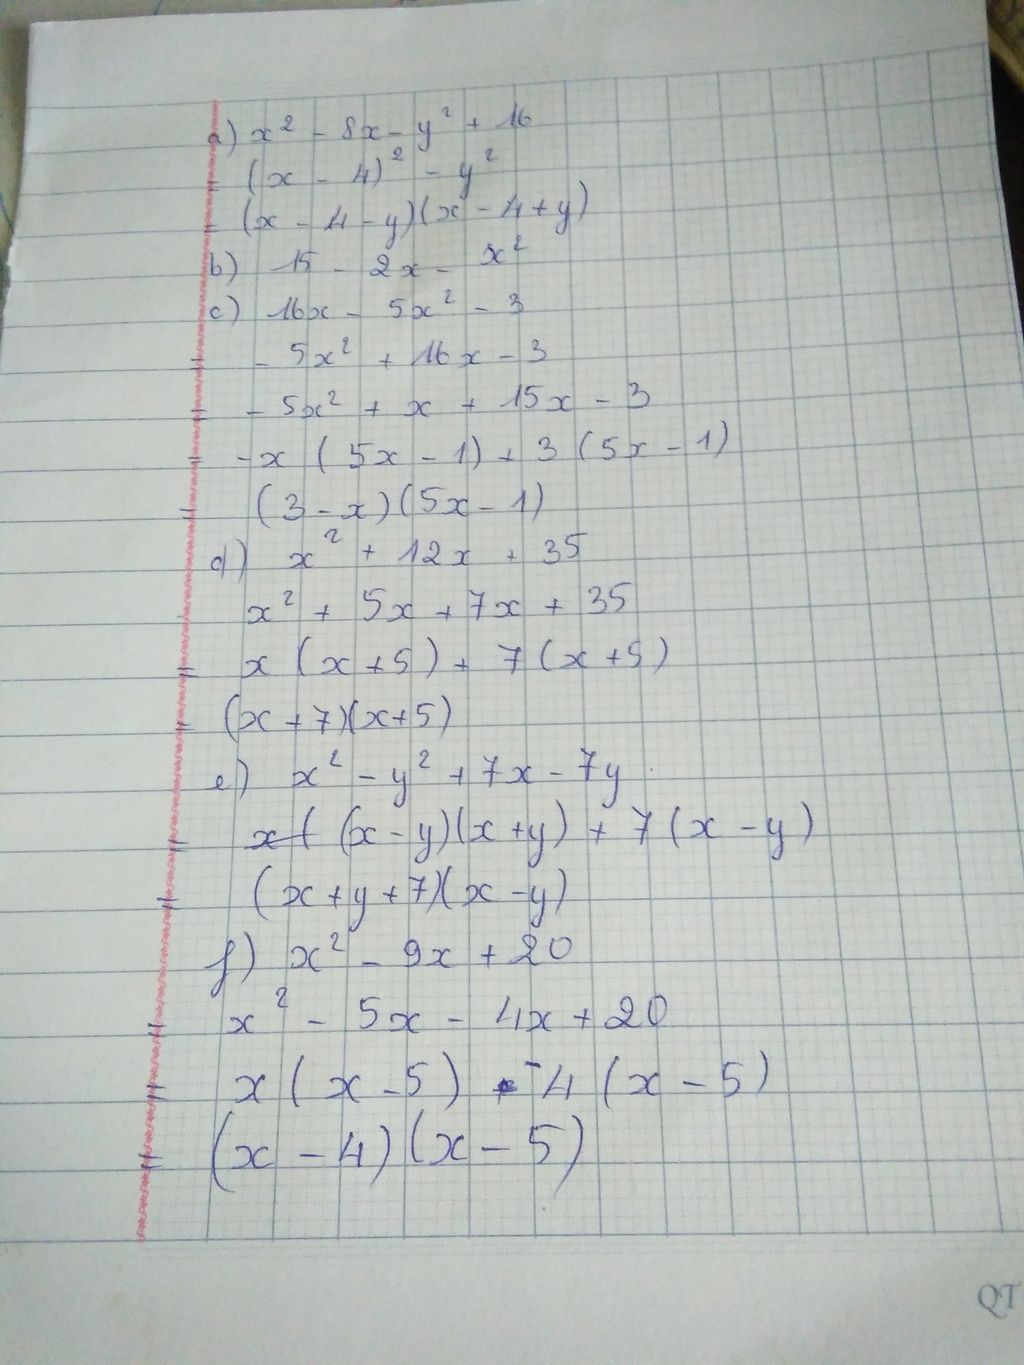 a) x² - 8x - y² + 16
= (x - 4)² - y²
= (x - 4 - y)(x - 4 + y)
b) 15 - 2x - x²
c) 16x - 5x² - 3
= - 5x² + 16x - 3
= - 5x² + x + 15x - 3
= -x (5x - 1) + 3 (5x - 1)
= (3 - x)(5x - 1)
d) x² + 12x + 35
x² + 5x + 7x + 35
= x (x + 5) + 7 (x + 5)
= (x + 7)(x + 5)
e) x² - y² + 7x - 7y
= (x - y)(x + y) + 7 (x - y)
= (x + y + 7)(x - y)
f) x² - 9x + 20
= x² - 5x - 4x + 20
= x (x - 5) - 4 (x - 5)
= (x - 4)(x - 5)
QT